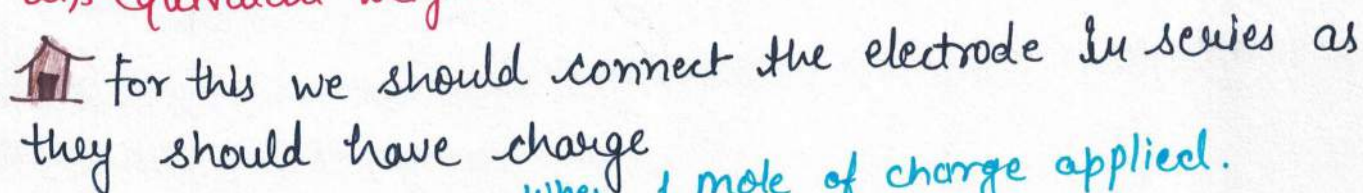 for this we should connect the electrode in series as
they should have charge
mole of charge applied.